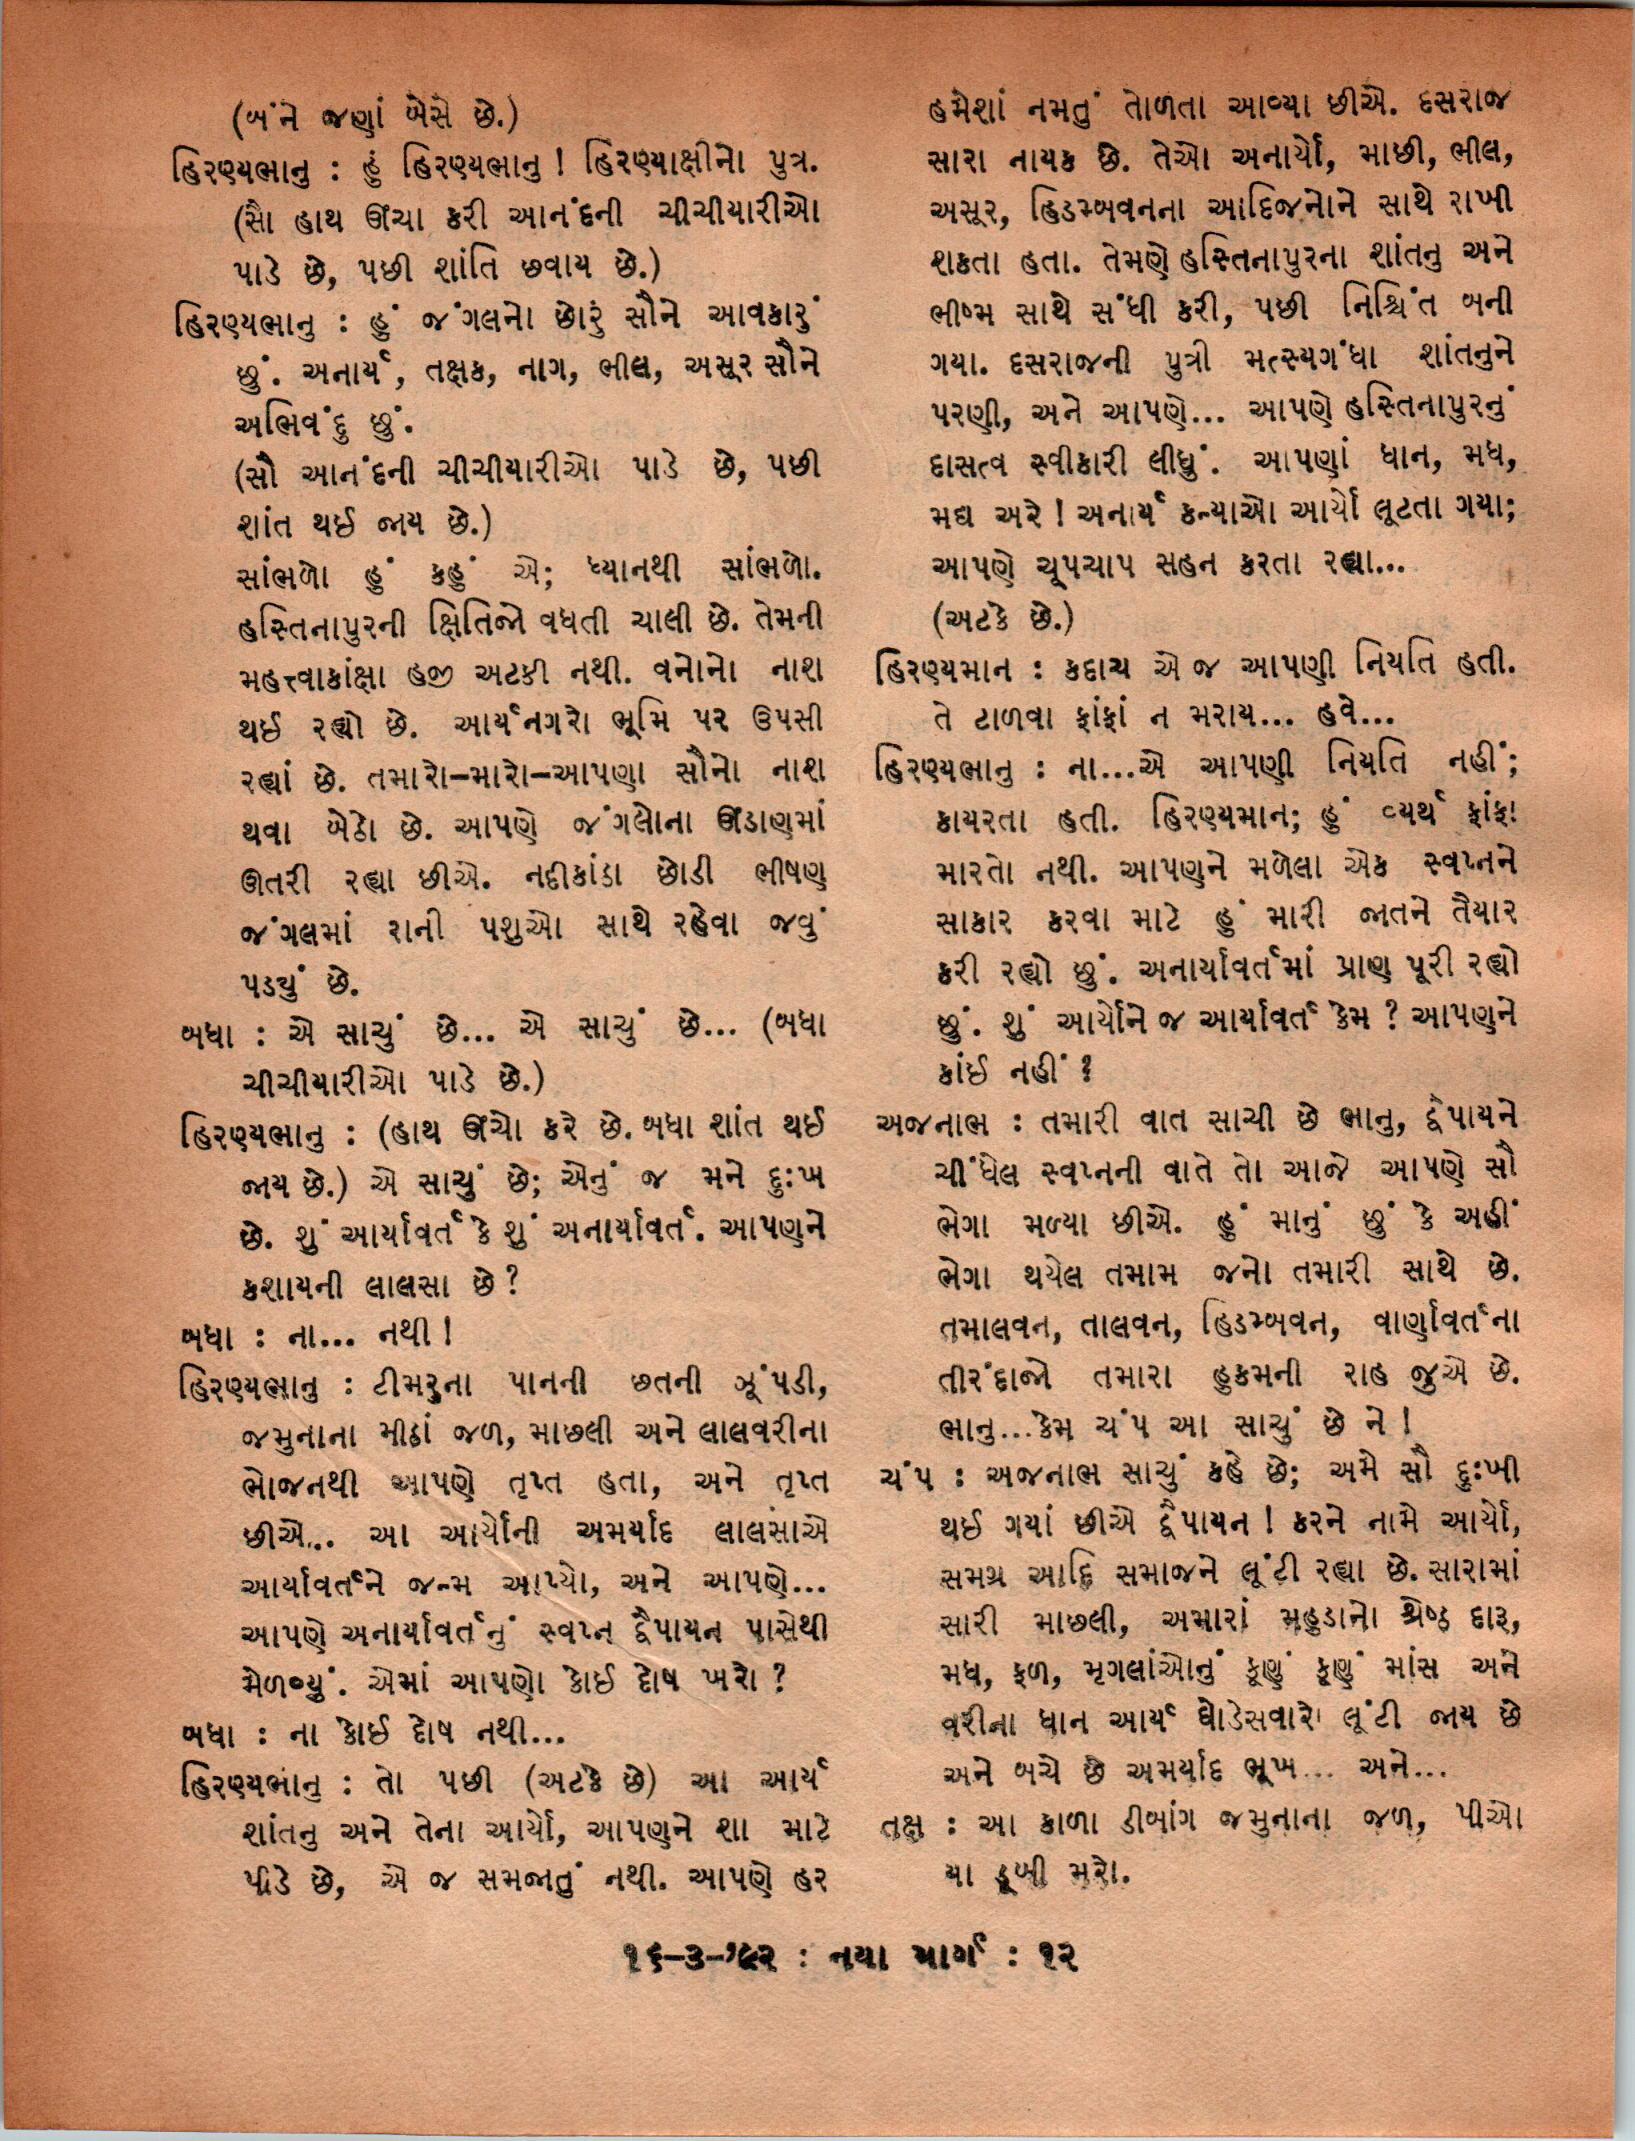 (બંને જણાં બેસે છે.)
હિરણ્યભાનુ : હું હિરણ્યભાનુ ! હિરણ્યાક્ષીનો પુત્ર.
(સૌ હાથ ઊંચા કરી આનંદની ચીચીયારીઓ
પાડે છે, પછી શાંતિ છવાય છે.)
હિરણ્યભાનુ : હું જંગલનો છોરું સૌને આવકારું
છું. અનાર્ય, તક્ષક, નાગ, ભીલ, અસૂર સૌને
અભિવંદુ છું.
(સૌ આનંદની ચીચીયારીઓ પાડે છે, પછી
શાંત થઈ જાય છે.)
સાંભળો હું કહું એ; ધ્યાનથી સાંભળો.
હસ્તિનાપુરની ક્ષિતિજો વધતી ચાલી છે. તેમની
મહત્ત્વાકાંક્ષા હજી અટકી નથી. વનોનો નાશ
થઈ રહ્યો છે. આર્યનગરો ભૂમિ પર ઉપસી
રહ્યાં છે. તમારો–મારો–આપણા સૌનો નાશ
થવા બેઠો છે. આપણે જંગલોના ઊંડાણમાં
ઊતરી રહ્યા છીએ. નદીકાંડા છોડી ભીષણ
જંગલમાં રાની પશુઓ સાથે રહેવા જવું
પડયું છે.
બધા : એ સાચું છે... એ સાચું છે... (બધા
ચીચીયારીઓ પાડે છે.)
હિરણ્યભાનુ : (હાથ ઊંચો કરે છે. બધા શાંત થઈ
જાય છે.) એ સાચું છે; એનું જ મને દુઃખ
છે. શું આર્યાવર્ત કે શું અનાર્યાવર્ત. આપણને
કશાયની લાલસા છે?
બધા : ના... નથી !
હિરણ્યભાનુ : ટીમરુના પાનની છતની ઝૂંપડી,
જમુનાના મીઠાં જળ, માછલી અને લાલવરીના
ભોજનથી આપણે તૃપ્ત હતા, અને તૃપ્ત
છીએ... આ આર્યોની અમર્યાદ લાલસાએ
આર્યાવર્તને જન્મ આપ્યો, અને આપણે...
આપણે અનાર્યાવર્તનું સ્વપ્ન દ્વૈપાયન પાસેથી
મેળવ્યું. એમાં આપણો કોઈ દોષ ખરો ?
બધા : ના કોઈ દોષ નથી...
હિરણ્યભાનુ : તો પછી (અટકે છે) આ આર્ય
શાંતનુ અને તેના આર્યો, આપણને શા માટે
પીડે છે, એ જ સમજાતું નથી. આપણે હર
હમેશાં નમતું તોળતા આવ્યા છીએ. દસરાજ
સારા નાયક છે. તેઓ અનાર્યો, માછી, ભીલ,
અસૂર, હિડમ્બવનના આદિજનોને સાથે રાખી
શકતા હતા. તેમણે હસ્તિનાપુરના શાંતનુ અને
ભીષ્મ સાથે સંધી કરી, પછી નિશ્ચિંત બની
ગયા. દસરાજની પુત્રી મત્સ્યગંધા શાંતનુને
પરણી, અને આપણે... આપણે હસ્તિનાપુરનું
દાસત્વ સ્વીકારી લીધું. આપણાં ધાન, મધ,
મદ્ય અરે ! અનાર્ય કન્યાઓ આર્યો લૂટતા ગયા;
આપણે ચૂપચાપ સહન કરતા રહ્યા...
(અટકે છે.)
હિરણ્યમાન : કદાચ એ જ આપણી નિયતિ હતી.
તે ટાળવા ફાંફાં ન મરાય... હવે...
હિરણ્યભાનુ : ના...એ આપણી નિયતિ નહીં;
કાયરતા હતી. હિરણ્યમાન; હું વ્યર્થ ફાંફા
મારતો નથી. આપણને મળેલા એક સ્વપ્નને
સાકાર કરવા માટે હું મારી જાતને તૈયાર
કરી રહ્યો છું. અનાર્યાવર્તમાં પ્રાણ પૂરી રહ્યો
છું. શું આર્યોને જ આર્યાવર્ત કેમ ? આપણને
કાંઈ નહીં ?
અજનાભ : તમારી વાત સાચી છે ભાનુ, દ્વૈપાયને
ચીંધેલ સ્વપ્નની વાતે તો આજે આપણે સૌ
ભેગા મળ્યા છીએ. હું માનું છું કે અહીં
ભેગા થયેલ તમામ જનો તમારી સાથે છે.
તમાલવન, તાલવન, હિડમ્બવન, વાર્ણાવર્તના
તીરંદાજો તમારા હુકમની રાહ જુએ છે.
ભાનુ...કેમ ચંપ આ સાચું છે ને !
ચંપ : અજનાભ સાચું કહે છે; અમે સૌ દુઃખી
થઈ ગયાં છીએ દ્વૈપાયન ! કરને નામે આર્યો,
સમગ્ર આદિ સમાજને લૂંટી રહ્યા છે. સારામાં
સારી માછલી, અમારાં મહુડાનો શ્રેષ્ઠ દારૂ,
મધ, ફળ, મૃગલાંઓનું કૂણું કૂણું માંસ અને
વરીના ધાન આર્ય ઘોડેસવારો લૂંટી જાય છે
અને બચે છે અમર્યાદ ભૂખ... અને...
તક્ષ : આ કાળા ડીબાંગ જમુનાના જળ, પીઓ
યા ડૂબી મરો.
૧૬–૩–'૯૨ : નયા માર્ગ : ૧૨